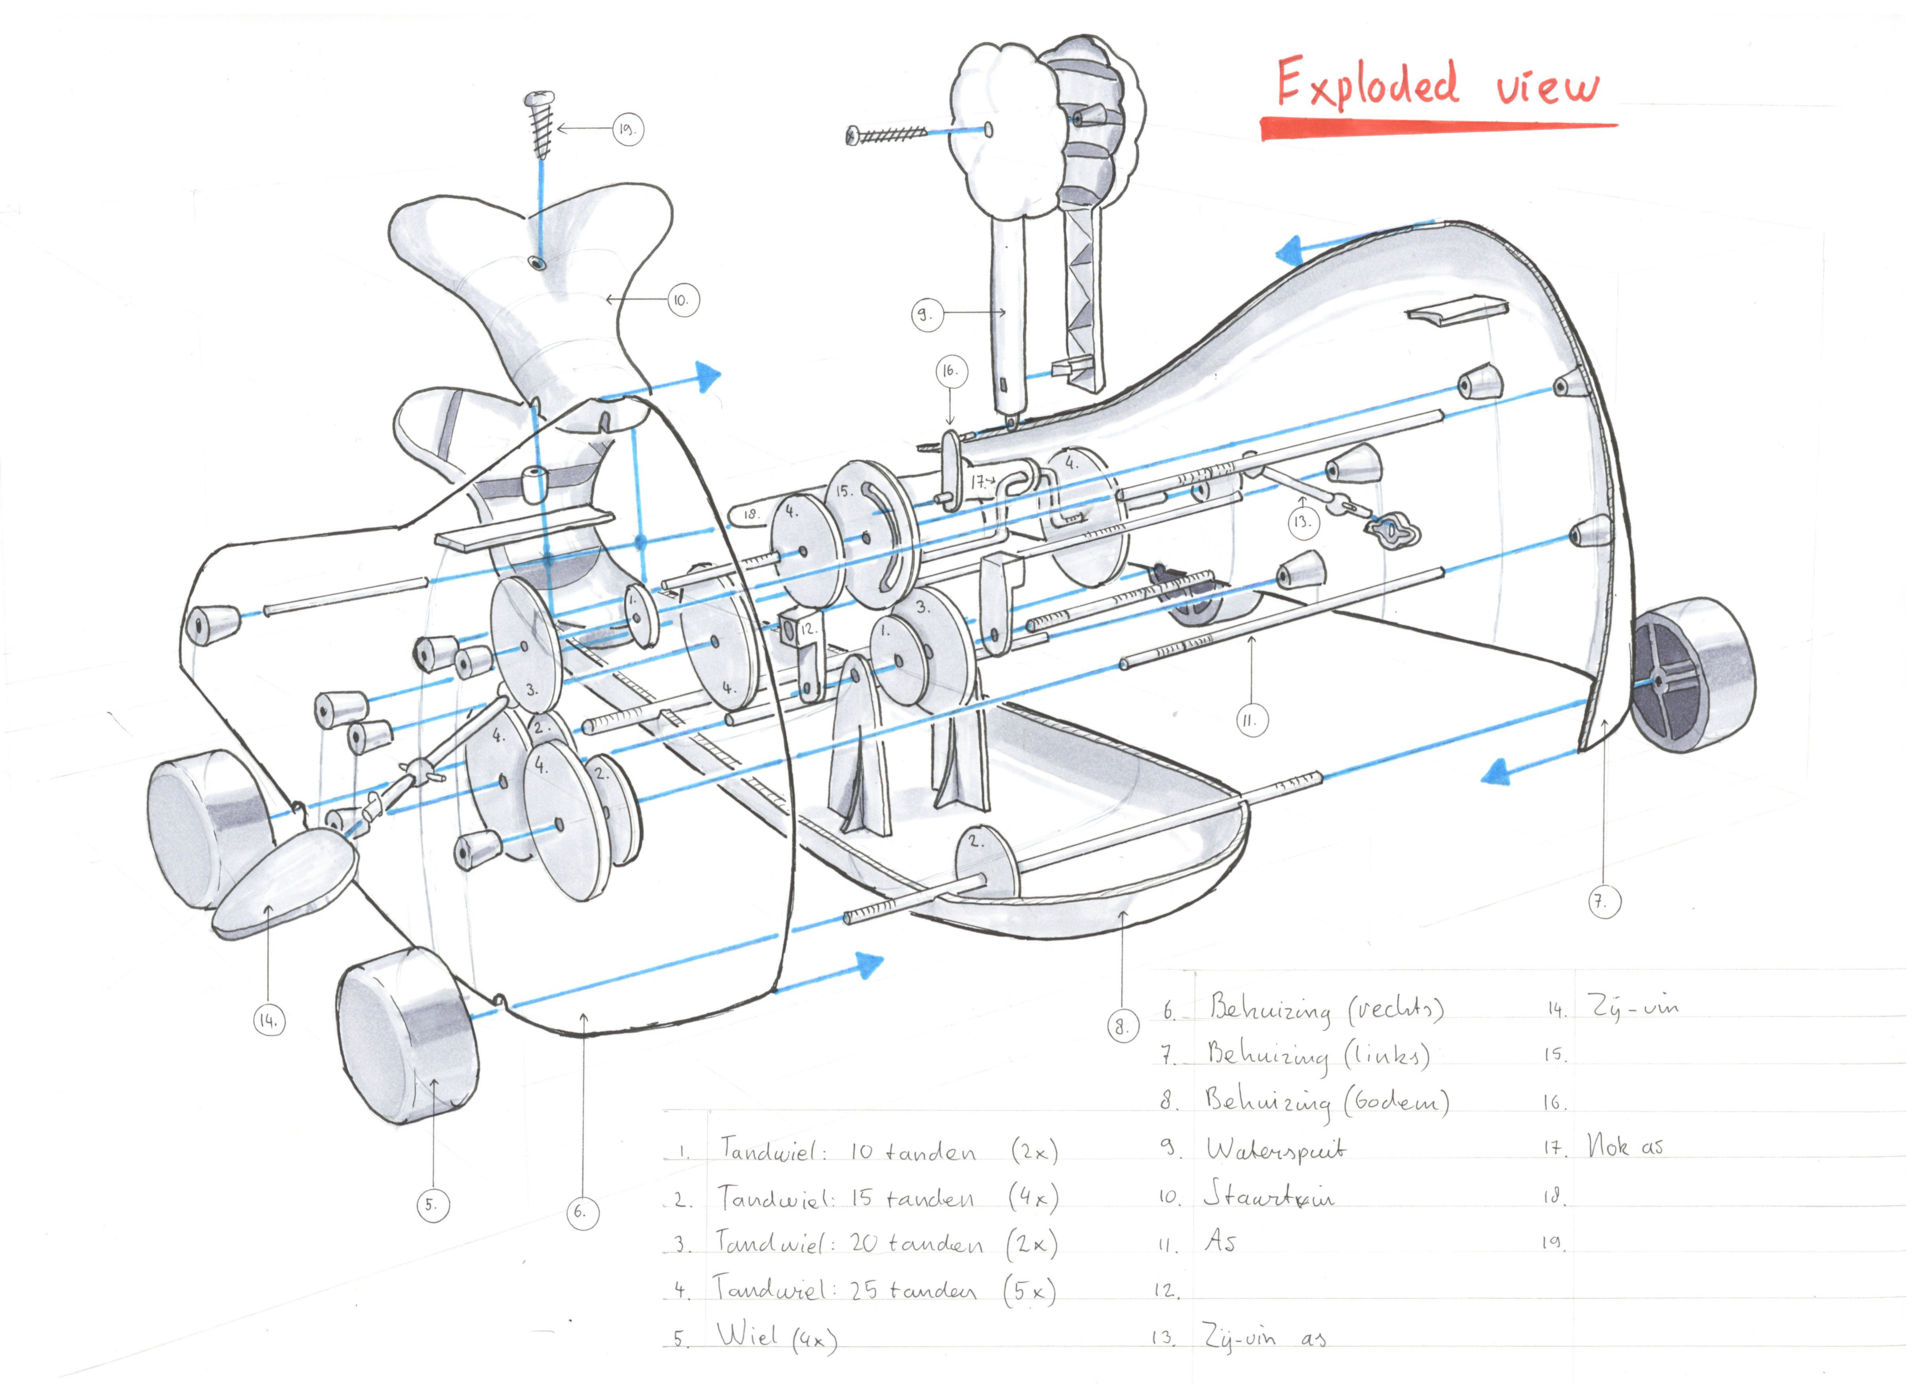 Exploded view
19.
10.
9.
16.
4.
17.
15.
18.
4.
13.
1.
3.
12.
1.
3.
4.
2.
4.
4.
2.
11.
2.
7.
14.
8.
5.
6.
1. Tandwiel: 10 tanden (2x)
2. Tandwiel: 15 tanden (4x)
3. Tandwiel: 20 tanden (2x)
4. Tandwiel: 25 tanden (5x)
5. Wiel (4x)
6. Behuizing (rechts)
7. Behuizing (links)
8. Behuizing (bodem)
9. Waterspuit
10. Staartvin
11. As
12.
13. Zij-vin as
14. Zij-vin
15.
16.
17. Nok as
18.
19.